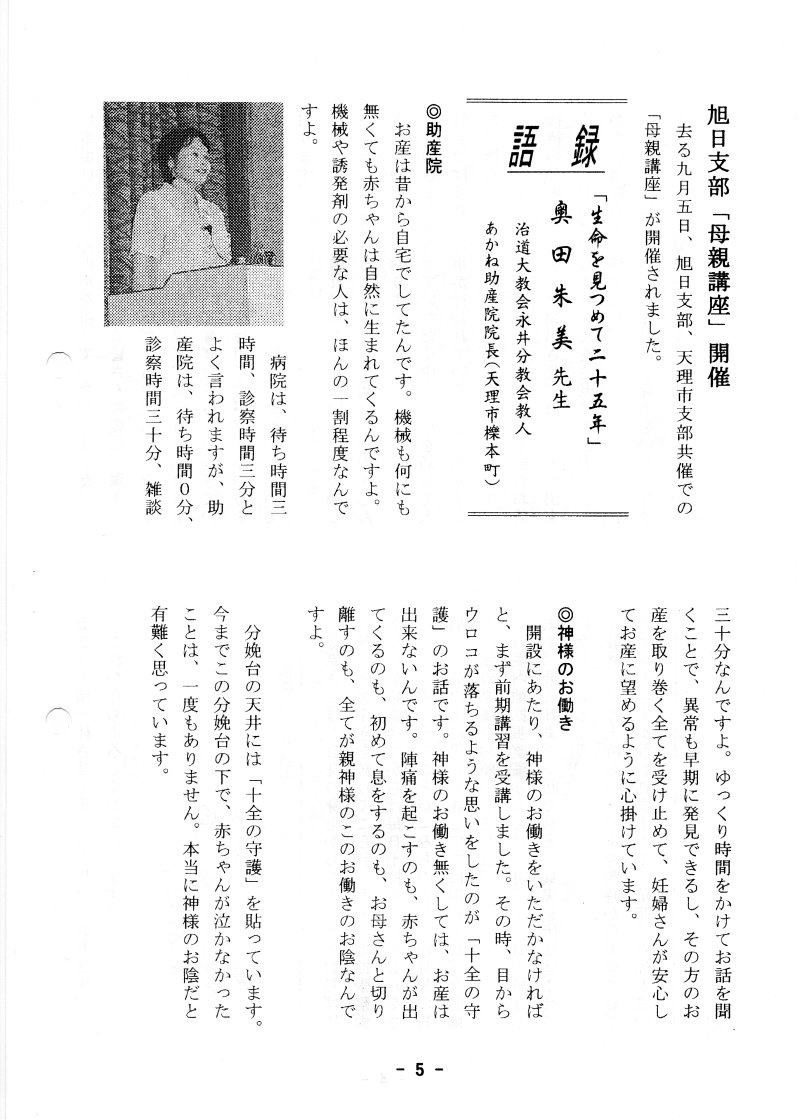 旭日支部「母親講座」開催
去る九月五日、旭日支部、天理市支部共催での
「母親講座」が開催されました。
語録
「生命を見つめて二十五年」
奥田朱美先生
治道大教会永井分教会教人
あかね助産院院長(天理市櫟本町)
◎助産院
お産は昔から自宅でしてたんです。機械も何にも
無くても赤ちゃんは自然に生まれてくるんですよ。
機械や誘発剤の必要な人は、ほんの一割程度なんで
すよ。
病院は、待ち時間三
時間、診察時間三分と
よく言われますが、助
産院は、待ち時間0分、
診察時間三十分、雑談
三十分なんですよ。ゆっくり時間をかけてお話を聞
くことで、異常も早期に発見できるし、その方のお
産を取り巻く全てを受け止めて、妊婦さんが安心し
てお産に望めるように心掛けています。
◎神様のお働き
開設にあたり、神様のお働きをいただかなければ
と、まず前期講習を受講しました。その時、目から
ウロコが落ちるような思いをしたのが「十全の守
護」のお話です。神様のお働き無くしては、お産は
出来ないんです。陣痛を起こすのも、赤ちゃんが出
てくるのも、初めて息をするのも、お母さんと切り
離すのも、全てが親神様のこのお働きのお陰なんで
すよ。
分娩台の天井には「十全の守護」を貼っています。
今までこの分娩台の下で、赤ちゃんが泣かなかった
ことは、一度もありません。本当に神様のお陰だと
有難く思っています。
- 5 -